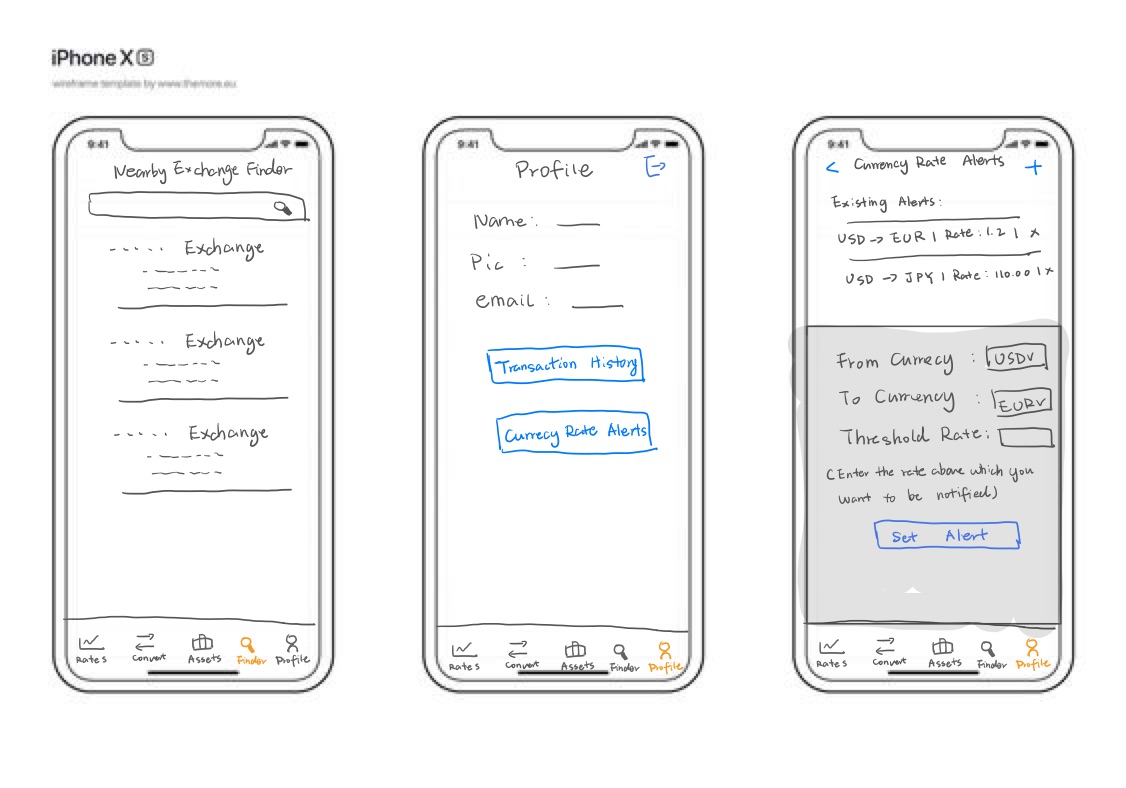 iPhone X S
wireframe template by www.themore.eu
9:41
Nearby Exchange Finder
Exchange
Exchange
Exchange
Rates
Convert
Assets
Finder
Profile
9:41
Profile
Name:
Pic :
email :
Transaction History
Currecy Rate Alerts
Rates
Convert
Assets
Finder
Profile
9:41
< Currency Rate Alerts +
Existing Alerts:
USD -> EUR | Rate: 1.2 | x
USD -> JPY | Rate: 110.00 | x
From Currecy : USD v
To Currency : EUR v
Threshold Rate:
(Enter the rate above which you
want to be notified)
Set Alert
Rates
Convert
Assets
Finder
Profile